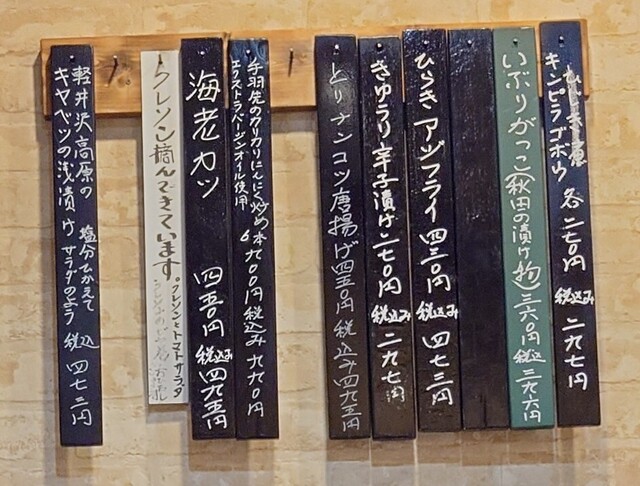 ひじき煮
キンピラゴボウ 各二七〇円 税込み 二九七円
いぶりがっこ(秋田の漬け物) 三六〇円 税込 三九六円
ひらきアジフライ 四三〇円 税込み 四七三円
きゅうり辛子漬け 二七〇円 税込み 二九七円
とりナンコツ唐揚げ 四五〇円 税込み 四九五円
手羽先のカリカリにんにく炒め
エクストラバージンオイル使用 6本 九〇〇円 税込み 九九〇円
海老カツ 四五〇円 税込み 四九五円
クレソン摘んできています。
クレソンとトマトサラダ
軽井沢高原の
キャベツの浅漬け
塩分ひかえて
サラダのよう 税込 四七三円